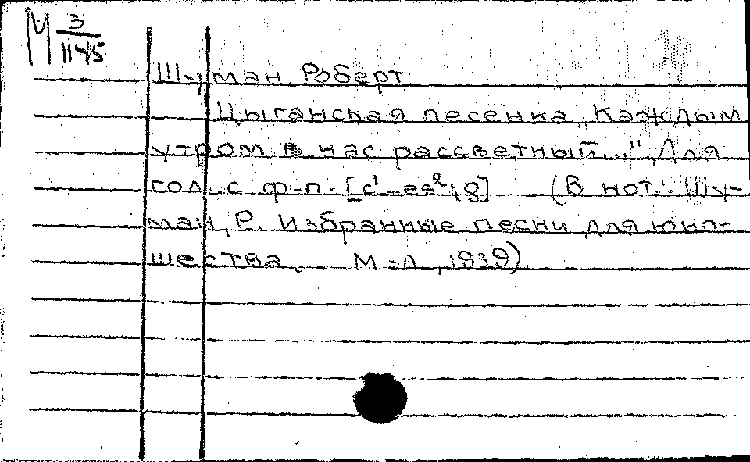 М 3
1145
Шуман Роберт
Цыганская песенка „Каждым
утром в час рассветный..." Для
гол. с ф-п. [c¹-es²; g] (В нот.: Шу-
ман, Р. Избранные песни для юно-
шества. М.-Л., 1939)